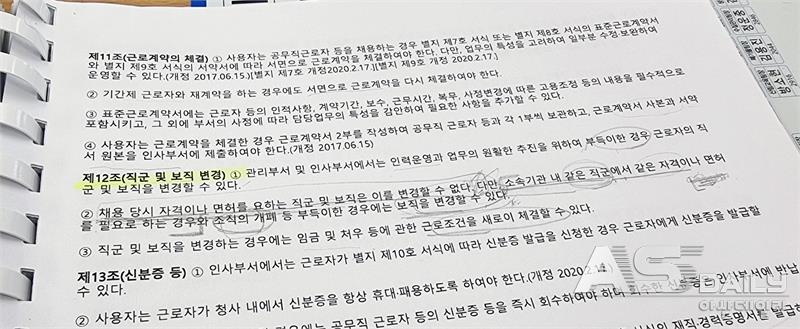 제11조(근로계약의 체결) ① 사용자는 공무직근로자 등을 채용하는 경우 별지 제7호 서식 또는 별지 제8호 서식의 표준근로계약서
와 별지 제9호 서식의 서약서에 따라 서면으로 근로계약을 체결하여야 한다. 다만, 업무의 특성을 고려하여 일부분 수정·보완하여
운영할 수 있다.(개정 2017.06.15.)[별지 제7호 개정2020.2.17.][별지 제9호 개정 2020.2.17.]
② 기간제 근로자와 재계약을 하는 경우에도 서면으로 근로계약을 다시 체결하여야 한다.
③ 표준근로계약서에는 근로자 등의 인적사항, 계약기간, 보수, 근무시간, 복무, 사정변경에 따른 고용조정 등의 내용을 필수적으로
포함시키고, 그 외에 부서의 사정에 따라 담당업무의 특성을 감안하여 필요한 사항을 추가할 수 있다.
④ 사용자는 근로계약을 체결한 경우 근로계약서 2부를 작성하여 공무직 근로자 등과 각 1부씩 보관하고, 근로계약서 사본과 서약
서 원본을 인사부서에 제출하여야 한다.(개정 2017.06.15)
제12조(직군 및 보직 변경) ① 관리부서 및 인사부서에서는 인력운영과 업무의 원활한 추진을 위하여 부득이한 경우 근로자의 직
군 및 보직을 변경할 수 있다.
② 채용 당시 자격이나 면허를 요하는 직군 및 보직은 이를 변경할 수 없다. 다만, 소속기관 내 같은 직군에서 같은 자격이나 면허
를 필요로 하는 경우와 조직의 개폐 등 부득이한 경우에는 보직을 변경할 수 있다.
③ 직군 및 보직을 변경하는 경우에는 임금 및 처우 등에 관한 근로조건을 새로이 체결할 수 있다.
제13조(신분증 등) ① 인사부서에서는 근로자가 별지 제10호 서식에 따라 신분증 발급을 신청한 경우 근로자에게 신분증을 발급할
수 있다.
② 사용자는 근로자가 청사 내에서 신분증을 항상 휴대·패용하도록 하여야 한다.(개정 2020.2.14.)
경우에는 공무직 근로자 등의 신분증 등을 즉시 회수하여야 하며 회수한 신분증은 인사부서에 반납
의 재직·경력증명서를 발급
AS DAILY
아시데일리